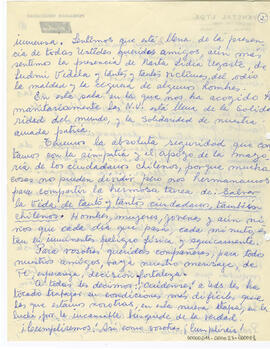 2
inmensa. Sentimos que está llena de la presen-
cia de todos Ustedes queridos amigos, aún más
sentimos la presencia de Marta Lidia Ugarte, de
Ludmi Videla y tantas y tantas víctimas del odio
la maldad y la ceguera de algunos hombres.
En esta casa en la que nos ha acogido
manitariamente las N.U. está llena de la Solida-
ridad del mundo, y la Solidaridad de nuestra
amada patria.
Tenemos la absoluta seguridad que con-
tamos con la simpatía y el apoyo de la mayo-
ría de los ciudadanos chilenos, porque muchas
cosas nos pueden dividir pero nos hermanamos
para compartir la hermosa tarea de: Salvar
la vida de tantos y tantos ciudadanos, también
chilenos. Hombres, mujeres, jóvenes y aún ni-
ños que cada día que pasa, cada minuto es-
tán en inminente peligro física y psíquicamente.
Para vosotros queridos compañeros, para todos
nuestros amigos vaya nuestro mensaje, de
Fe, esperanza, decisión, fortaleza.
A todos les decimos: ¡Cuídense! a Uds les ha
tocado trabajar en condiciones más difíciles que
las que están nosotras, en esta nueva etapa, en la
lucha por la incansable búsqueda de la verdad
¡Les cumplimos! Así como vosotros ¡Cumpliréis!